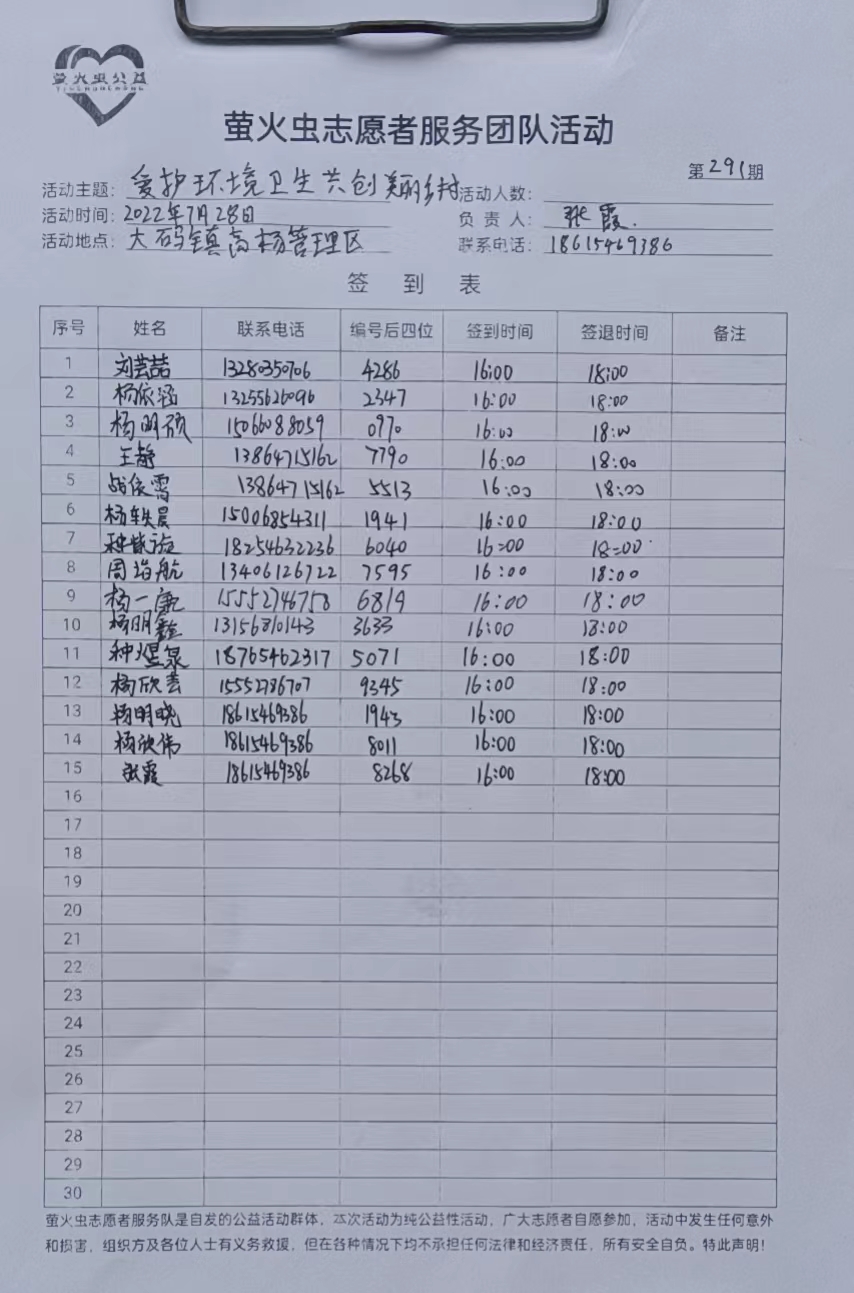 萤火虫公益
萤火虫志愿者服务团队活动
第291期
活动主题: 爱护环境卫生共创美丽乡村 活动人数:
活动时间: 2022年7月28日 负 责 人: 张霞.
活动地点: 大码镇高杨管理区 联系电话: 18615469386
签 到 表
序号 姓名 联系电话 编号后四位 签到时间 签退时间 备注
1 刘芸喆 13280350706 4286 16:00 18:00
2 杨依涵 13255626096 2347 16:00 18:00
3 杨明硕 15066088059 0970 16:00 18:00
4 王静 13864715162 7790 16:00 18:00
5 战依霄 13864715162 5513 16:00 18:00
6 杨轶晨 15006854311 1941 16:00 18:00
7 种 18254632236 6040 16:00 18:00
8 周 航 13406126722 7595 16:00 18:00
9 杨一廉 15552746758 6819 16:00 18:00
10 杨明鑫 13156810143 3633 16:00 18:00
11 种煜泉 18765462317 5071 16:00 18:00
12 杨欣芸 15552786707 9345 16:00 18:00
13 杨明晓 18615469386 1943 16:00 18:00
14 杨欣伟 18615469386 8011 16:00 18:00
15 张霞 18615469386 8268 16:00 18:00
16
17
18
19
20
21
22
23
24
25
26
27
28
29
30
萤火虫志愿者服务队是自发的公益活动群体，本次活动为纯公益性活动，广大志愿者自愿参加，活动中发生任何意外
和损害，组织方及各位人士有义务救援，但在各种情况下均不承担任何法律和经济责任，所有安全自负。特此声明！